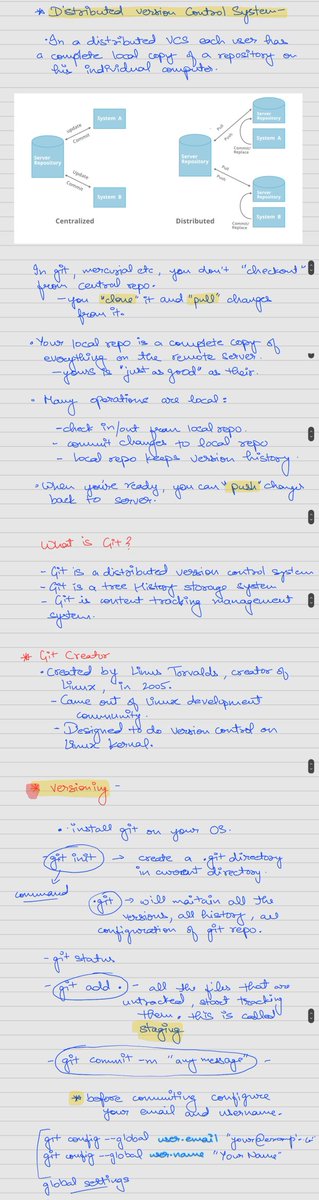 * Distributed Version Control System -
• In a distributed VCS each user has
a complete local copy of a repository on
his individual computer.
Server
Repository
System A
System B
Update
Commit
Update
Commit
Centralized
Server
Repository
Server
Repository
System A
Server
Repository
System B
Pull
Push
Pull
Push
Commit/
Replace
Commit/
Replace
Distributed
In git, mercurial etc, you don't "checkout"
from central repo.
- you "clone" it and "pull" changes
from it.
• Your local repo is a complete copy of
everything on the remote server.
- yours is "just as good" as their.
• Many operations are local:
- check in/out from local repo.
- commit changes to local repo
- local repo keeps version history.
• When you're ready, you can "push" changes
back to server.
What is Git?
- Git is a distributed version control system
- Git is a tree History storage system
- Git is content tracking management
system.
* Git Creator
• Created by Linus Torvalds, creator of
Linux, in 2005.
- Came out of Linux development
community.
- Designed to do version control on
Linux kernel.
* Versioning -
• install git on your OS.
- git init → create a .git directory
in current directory.
command
.git → will maitain all the
versions, all history, all
configuration of git repo.
- git status
- git add . - all the files that are
untracked, start tracking
them. this is called
staging
- git commit -m "any message" -
* before commiting configure
your email and username.
git config --global user.email
git config --global user.name "Your Name"
global settings